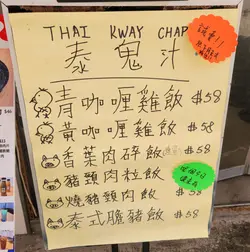 THAI KWAY CHAP
泰鬼汁
青咖喱雞飯 $58
黃咖喱雞飯 $58
香葉肉碎飯 $58
豬頸肉粒飯 $58
燒豬頸肉飯 $58
泰式臘豬飯 $58